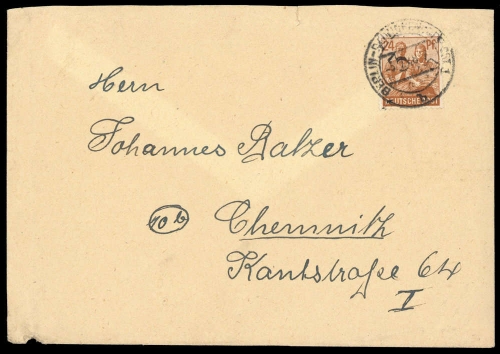 24 PF
DEUTSCHE POST
Herrn
Johannes Balzer
10b
Chemnitz
Kantstraße 64
I